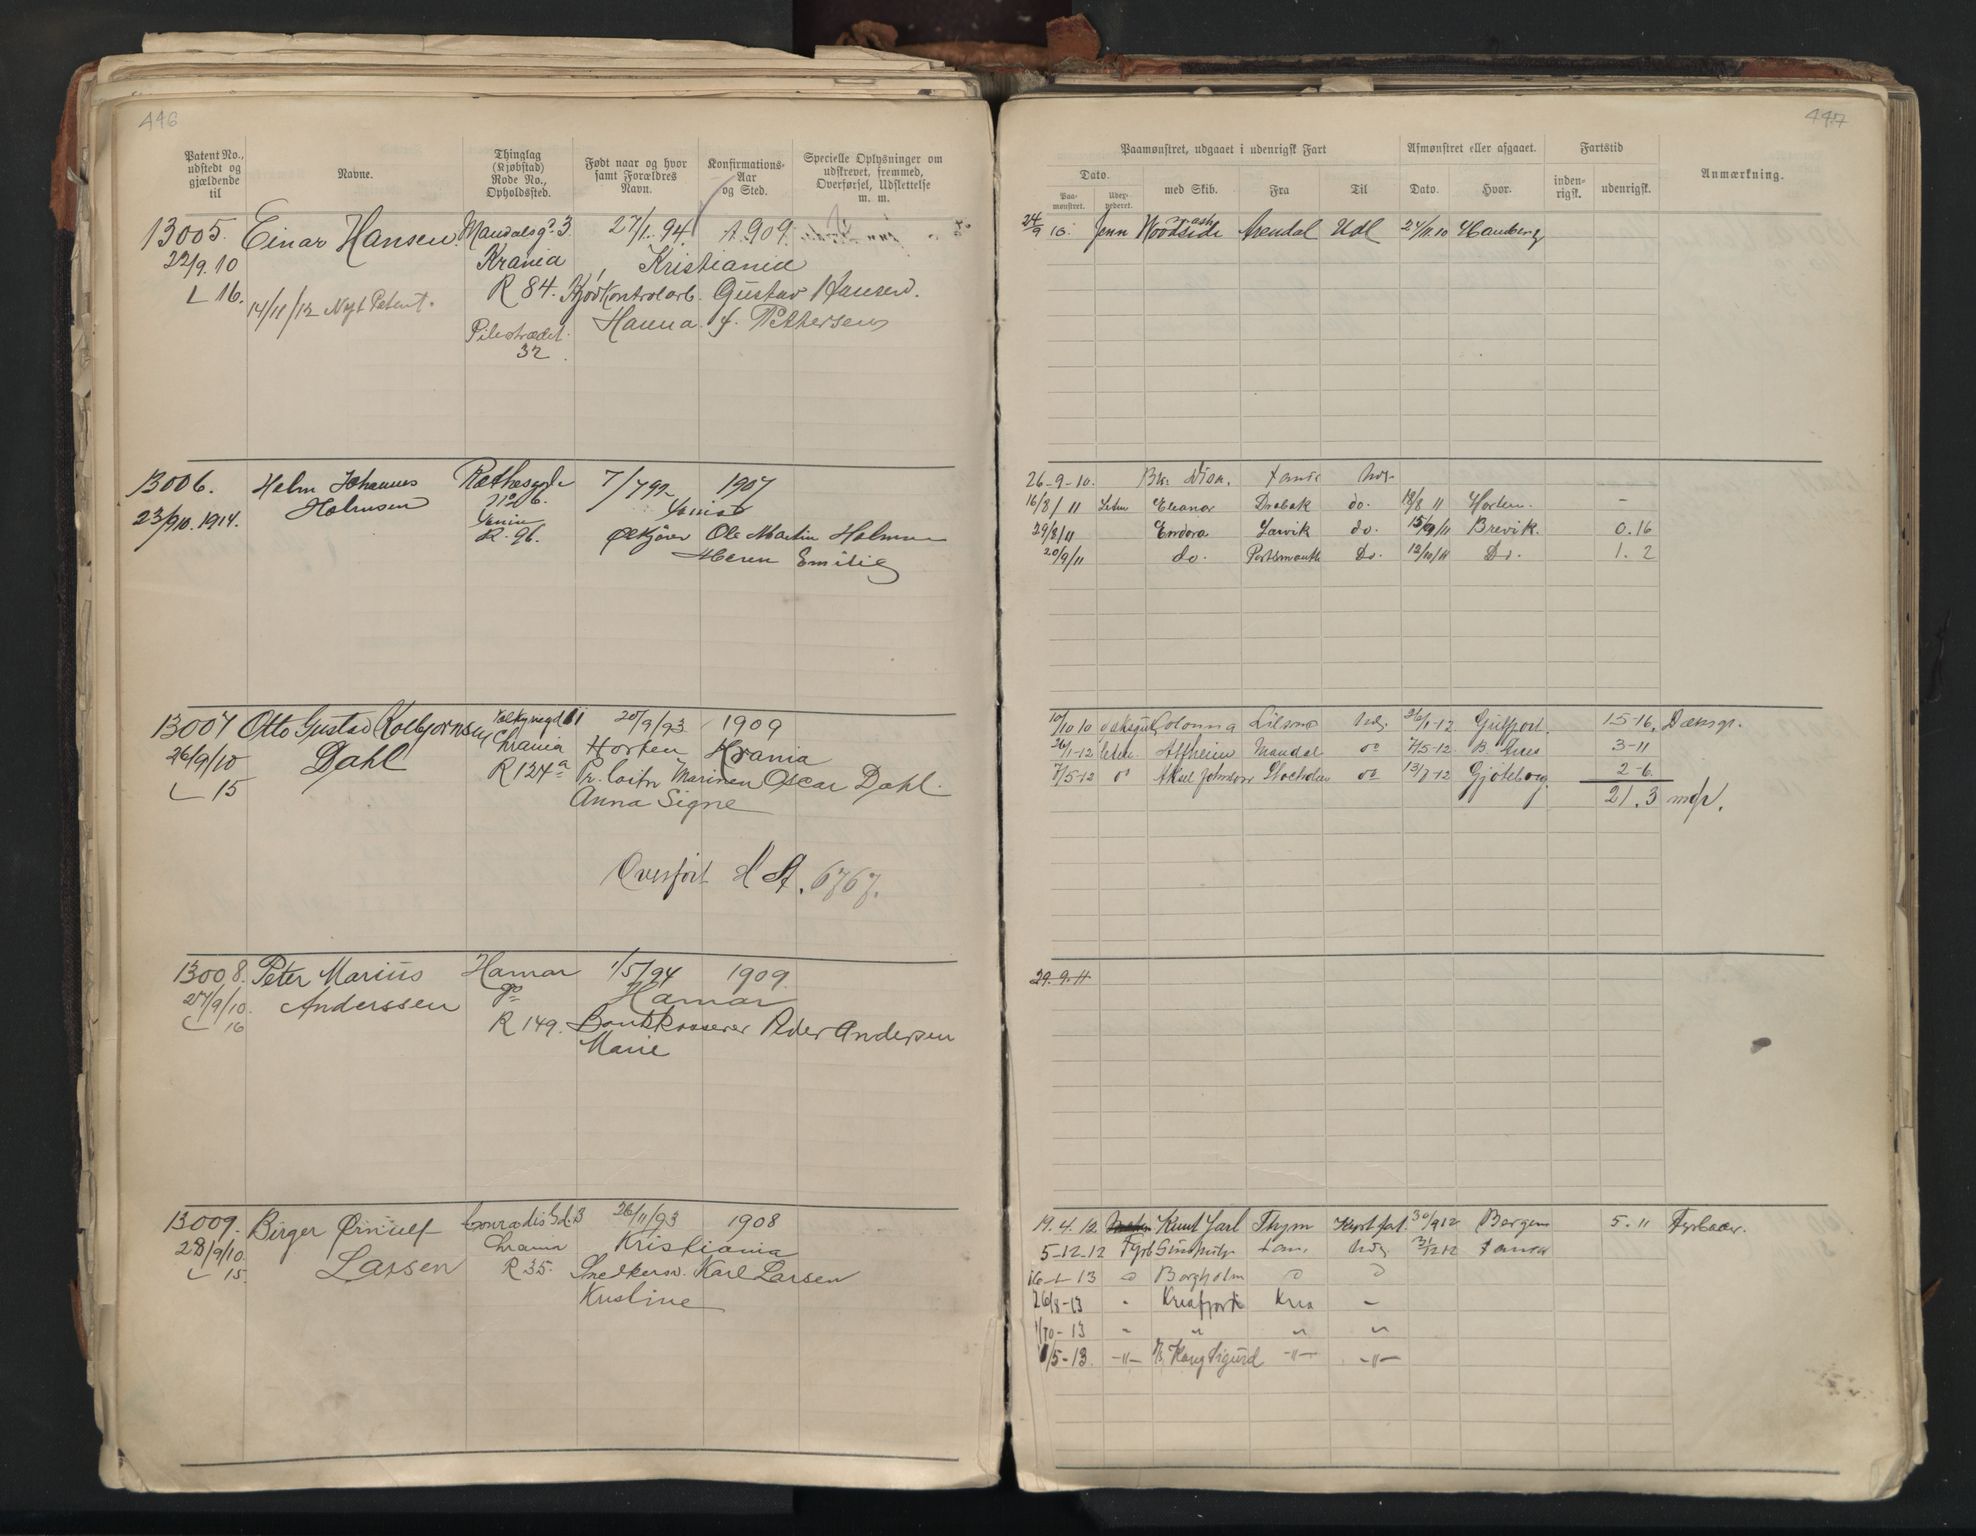 446
Patent No., udstedt og gjældende til
Navne.
Thinglag (Kjøbstad) Rode No., Opholdssted.
Født naar og hvor samt Forældres Navn.
Konfirmations-Aar og Sted.
Specielle Oplysninger om udskrevet, fremmed, Overførsel, Udslettelse m. m.
13005. Einar Hansen Mandalsg. 3 27/1. 94. 1909.
22/9. 10 Krania Kristiania
L 16. R 84. Kjødkontrolarb. Gustav Hansen.
14/11/12 Nyt Patent. Hanna f. Pettersen
Pilestrædet
32
13006. Holm Johannes Rathesgde 7/7 92 1907
Holmsen No 6.
23/9 10. 1914. R. 96. Ølkjører Ole Martin Holmsen
Maren Emilie
13007 Otto Gustav Kolbjørnsen 20/9/93 1909
26/9/10 Dahl Chrania Horten Krania
L 15 R 124a Pr. løitn Marinen Oscar Dahl.
Anna Signe
Overført H St. 6767.
13008. Peter Marius Hamar 1/5/94 1909.
27/9/10. Anderssen Hamar
L 16 R 149. Bankkasserer Peder Andersen
Marie
13009. Birger Ørnulf Conradisgd. 3 26/11/93 1908
28/9/10. Chrania Kristiania
L 15. Larsen R 35. Snedkersv. Karl Larsen
Kristine
447
Paamønstret, udgaaet i udenrigsk Fart
Afmønstret eller afgaaet.
Fartstid
Anmærkning.
Dato.
Paa-mønstret.
med Skib.
Fra
Til
Dato.
Hvor.
inden-rigsk.
udenrigsk.
24/9 10. Jenn Woodside Arendal Udl 24/11.10 Hamburg
26-9-10. Disa
16/8/11 Eleanor Drøbak do. 18/8 11 Horten. -
29/8/11 Endora Larvik do. 15/9/11 Brevik. 0.16
20/9/11 do. Portsmouth Do. 12/10/11 Do. 1. 2
10/10 10 Dæksgut Colonna 26/1-12 Gulfport. 15-16, Dæksgt.
26/1-12 Alfheim Mandal do 7/5-12 B. Aires 3-11
7/5-12 do Aksel Johnson Stocholm do 13/7-12 Gjøteborg. 2-6.
21.3
29.9.11
19.4.12. Kunt Jarl Thjm Kyst fart 30/9 12 Bergen 5.11 Fyrbøer.
5-12-12 Fyrb 31/12 12
16-1-13 Borgholm
26/8-13 Kriafjord Kria -
1/10-13 " " " "
1/5-13. -"- Kong Sigurd -"- -"-